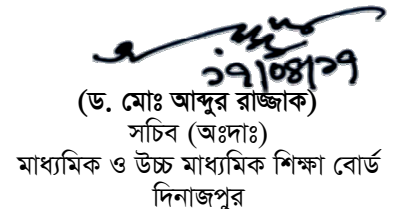 ১৭|০৪|১৭
(ড. মোঃ আব্দুর রাজ্জাক)
সচিব (অঃদাঃ)
মাধ্যমিক ও উচ্চ মাধ্যমিক শিক্ষা বোর্ড
দিনাজপুর